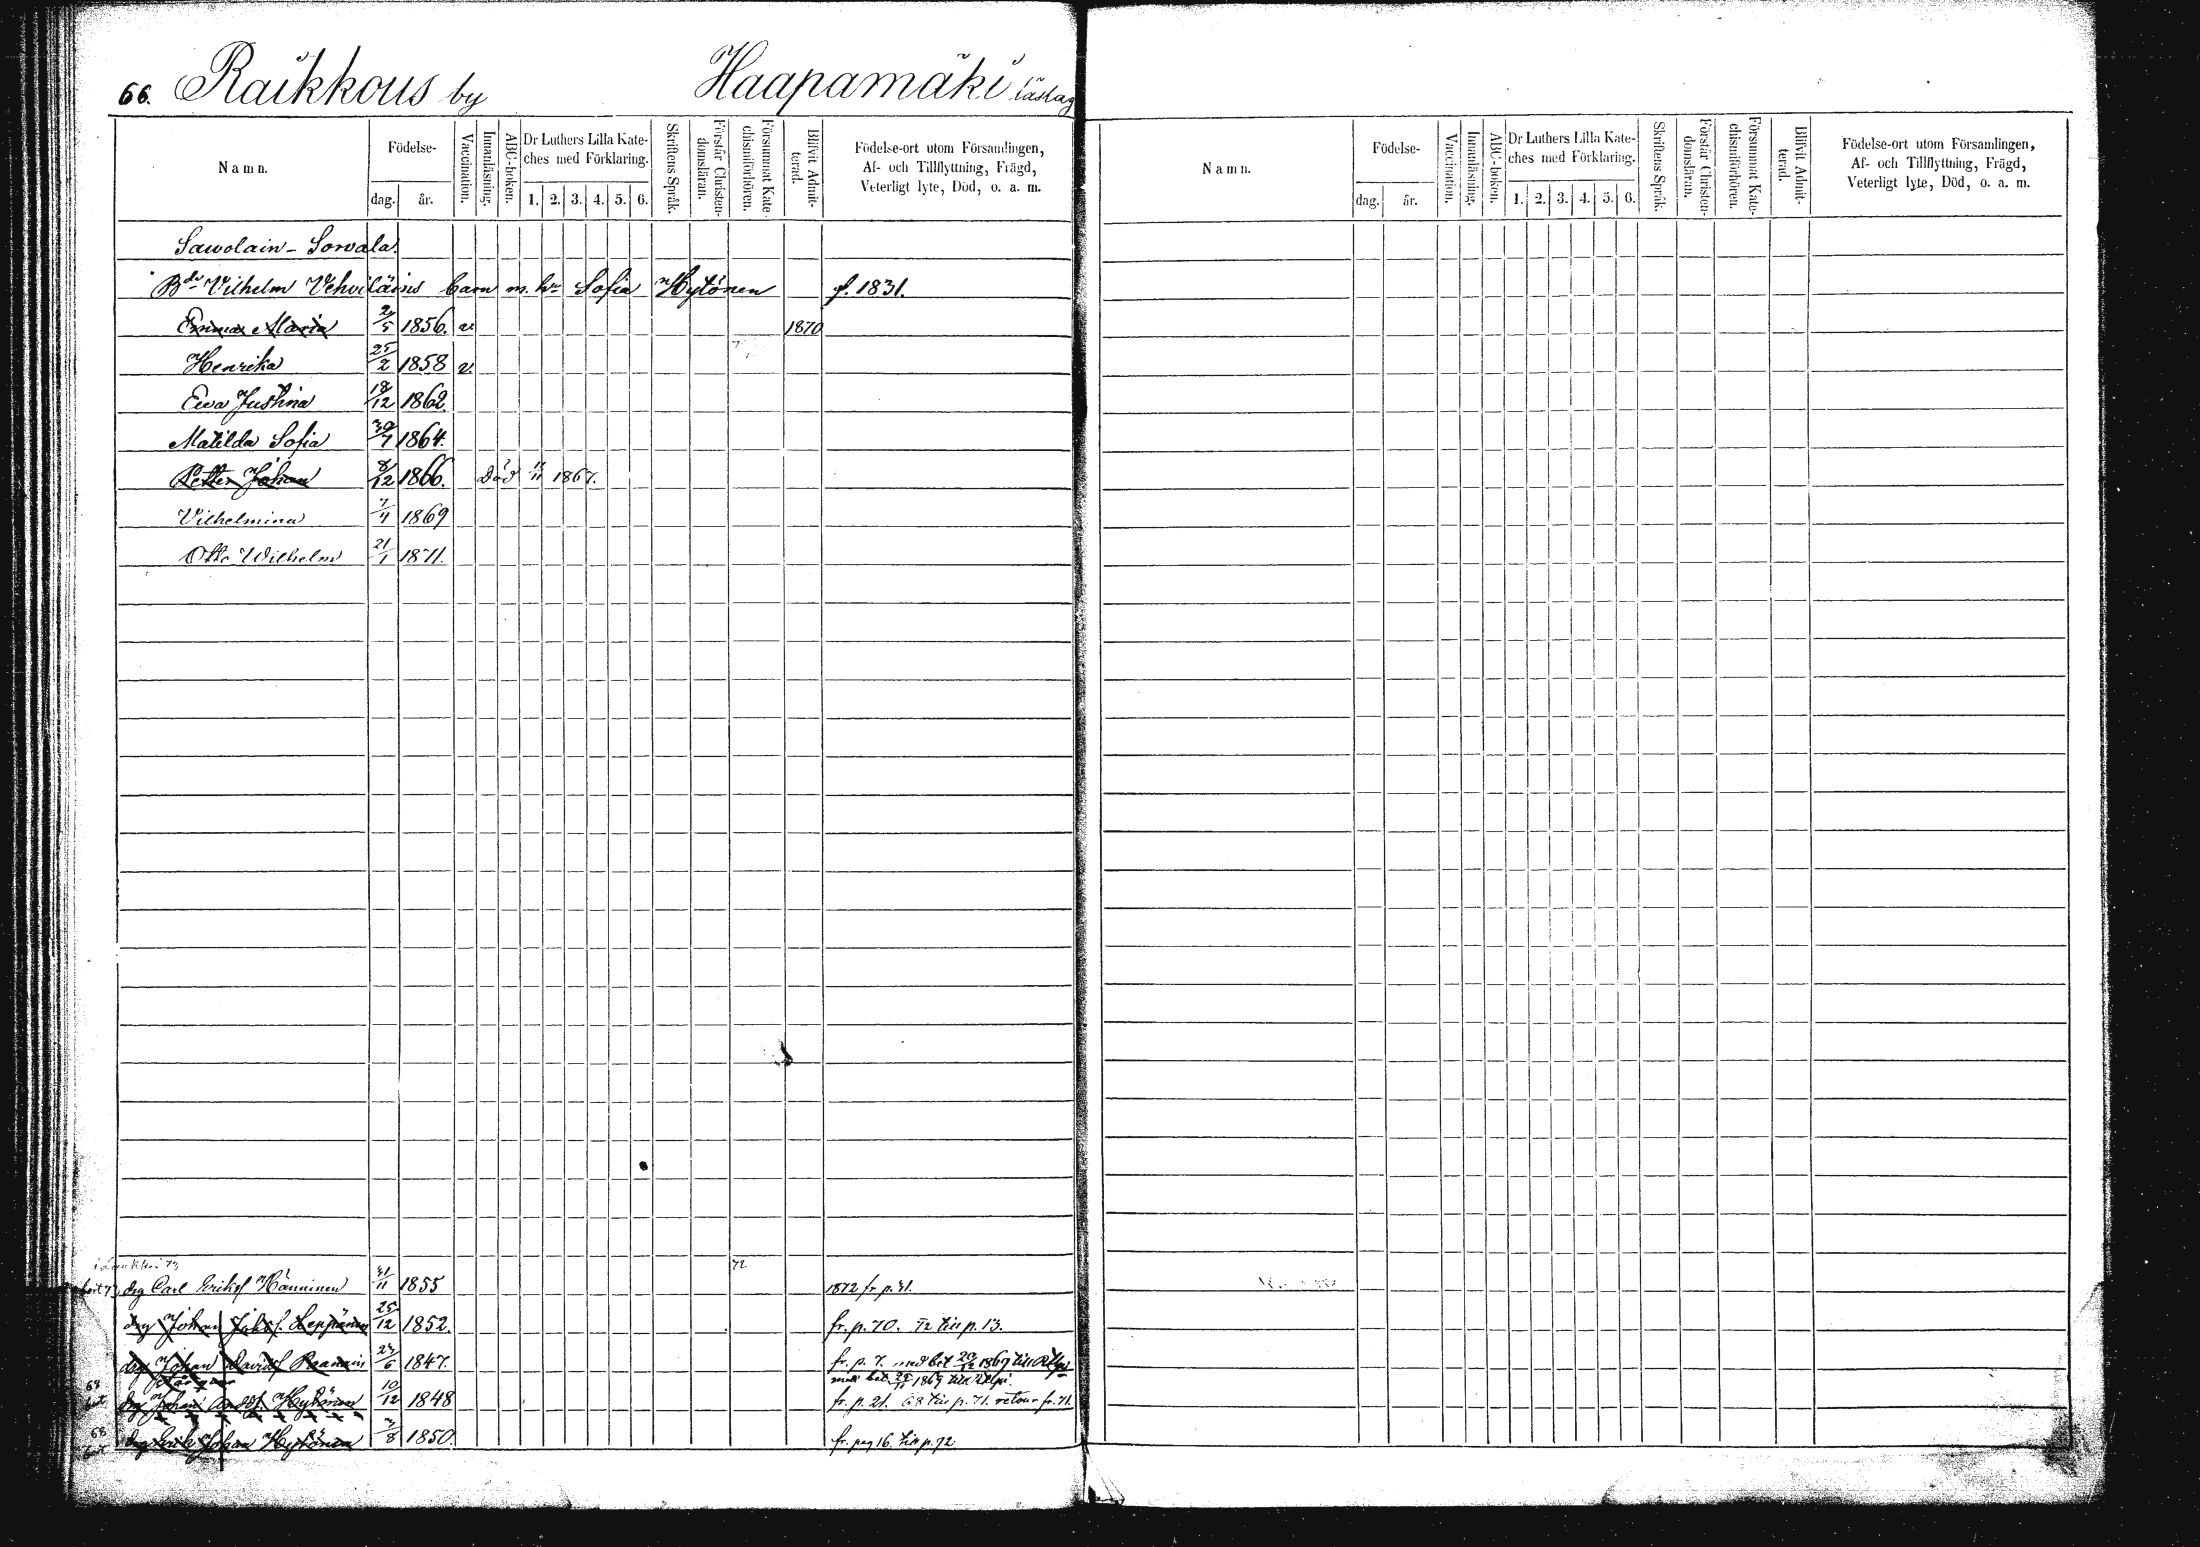 66. Raikkous by Haapamäki läslag
Namn.
Födelse-
dag. år.
Vaccination.
Innanläsning.
ABC-boken.
Dr Luthers Lilla Kate-
ches med Förklaring.
1. 2. 3. 4. 5. 6.
Skriftens Språk.
Förstår Christen-
domsläran.
Försummat Kate-
chismiförhören.
Blifvit Admit-
terad.
Födelse-ort utom Församlingen,
Af- och Tillflyttning, Frägd,
Veterligt lyte, Död, o. a. m.
Sawolain - Sorvala.
Bde Vilhelm Vehviläins barn m. h. Sofia Hytönen f. 1831.
Emma Maria 2/5 1856. v. 1870
Henrika 25/2 1858 v.
Eva Justina 18/12 1862.
Matilda Sofia 30/7 1864.
Petter Johan 8/12 1866. Död 11/11 1867.
Vilhelmina 7/4 1869
Otto Wilhelm 21/1 1871.
72
drg Carl Eriksf Hänninen 21/11 1855 1872 fr p. 31.
drg Johan Johsf. Leppänen 25/12 1852. fr. p. 70. 72 till p. 13.
drg Johan Davidsf 23/6 1847. fr. p. 7. med bet 20/12 1869 till
med bet 1869 till
drg Johan Andsf Hytönen 10/12 1848 fr. p. 21. 68 till p. 71. retour fr. 71.
68
drg Erik Johan Hytönen 3/8 1850. fr. pag 16. till p. 72
Namn.
Födelse-
dag. år.
Vaccination.
Innanläsning.
ABC-boken.
Dr Luthers Lilla Kate-
ches med Förklaring.
1. 2. 3. 4. 5. 6.
Skriftens Språk.
Förstår Christen-
domsläran.
Försummat Kate-
chismiförhören.
Blifvit Admit-
terad.
Födelse-ort utom Församlingen,
Af- och Tillflyttning, Frägd,
Veterligt lyte, Död, o. a. m.